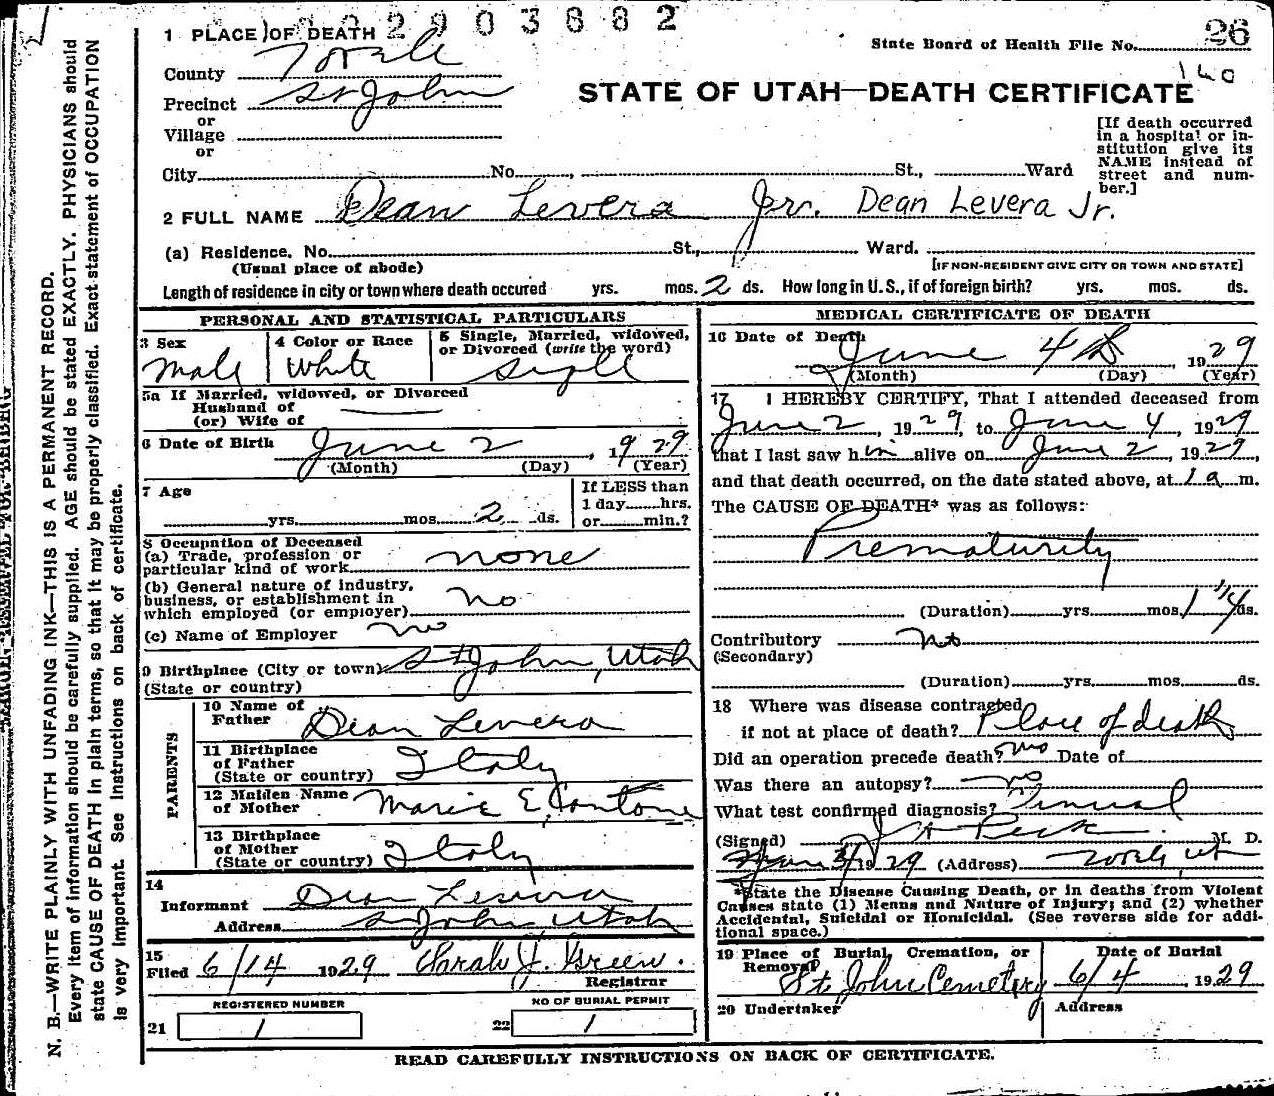 2903882
1 PLACE OF DEATH
State Board of Health File No. 26
County Tooele
140
STATE OF UTAH—DEATH CERTIFICATE
Precinct St John
or
Village
or
City No. , St., Ward
[If death occurred in a hospital or in-
stitution give its
NAME instead of
street and num-
ber.]
2 FULL NAME Dean Levera Jr. Dean Levera Jr.
(a) Residence. No. St., Ward.
(Usual place of abode) [IF NON-RESIDENT GIVE CITY OR TOWN AND STATE]
Length of residence in city or town where death occured yrs. mos. 2 ds. How long in U.S., if of foreign birth? yrs. mos. ds.
PERSONAL AND STATISTICAL PARTICULARS
3 Sex
Male
4 Color or Race
White
5 Single, Married, widowed,
or Divorced (write the word)
Single
5a If Married, widowed, or Divorced
Husband of
(or) Wife of
6 Date of Birth June 2, 1929
(Month) (Day) (Year)
7 Age
yrs. mos. 2 ds.
If LESS than
1 day hrs.
or min.?
8 Occupation of Deceased
(a) Trade, profession or
particular kind of work none
(b) General nature of industry,
business, or establishment in
which employed (or employer) no
(c) Name of Employer no
9 Birthplace (City or town) St John, Utah
(State or country)
PARENTS
10 Name of
Father Dean Levera
11 Birthplace
of Father
(State or country) Italy
12 Maiden Name
of Mother Marie E, Contone
13 Birthplace
of Mother
(State or country) Italy
14
Informant Dean Levera
Address St John, Utah
15
Filed 6/14 1929 Sarah J. Green.
Registrar
REGISTERED NUMBER
21 1
NO OF BURIAL PERMIT
22 1
MEDICAL CERTIFICATE OF DEATH
16 Date of Death
June 4th 1929
(Month) (Day) (Year)
17 I HEREBY CERTIFY, That I attended deceased from
June 2, 1929, to June 4, 1929
that I last saw him alive on June 2, 1929,
and that death occurred, on the date stated above, at 1 a m.
The CAUSE OF DEATH* was as follows:
Prematurity
(Duration) yrs. mos. 1 1/4 ds.
Contributory no
(Secondary)
(Duration) yrs. mos. ds.
18 Where was disease contracted
if not at place of death? Place of death
Did an operation precede death? no Date of
Was there an autopsy? no
What test confirmed diagnosis?
(Signed) J H Peck M. D.
1929 (Address) Tooele, Ut
*State the Disease Causing Death, or in deaths from Violent
Causes state (1) Menns and Nature of Injury; and (2) whether
Accidental, Suicidal or Homicidal. (See reverse side for addi-
tional space.)
19 Place of Burial, Cremation, or
Removal St. John Cemetery
Date of Burial
6/4 1929
20 Undertaker
Address
READ CAREFULLY INSTRUCTIONS ON BACK OF CERTIFICATE.
N. B.—WRITE PLAINLY WITH UNFADING INK—THIS IS A PERMANENT RECORD.
Every item of information should be carefully supplied. AGE should be stated EXACTLY. PHYSICIANS should
state CAUSE OF DEATH in plain terms, so that it may be properly classified. Exact statement of OCCUPATION
is very important. See instructions on back of certificate.